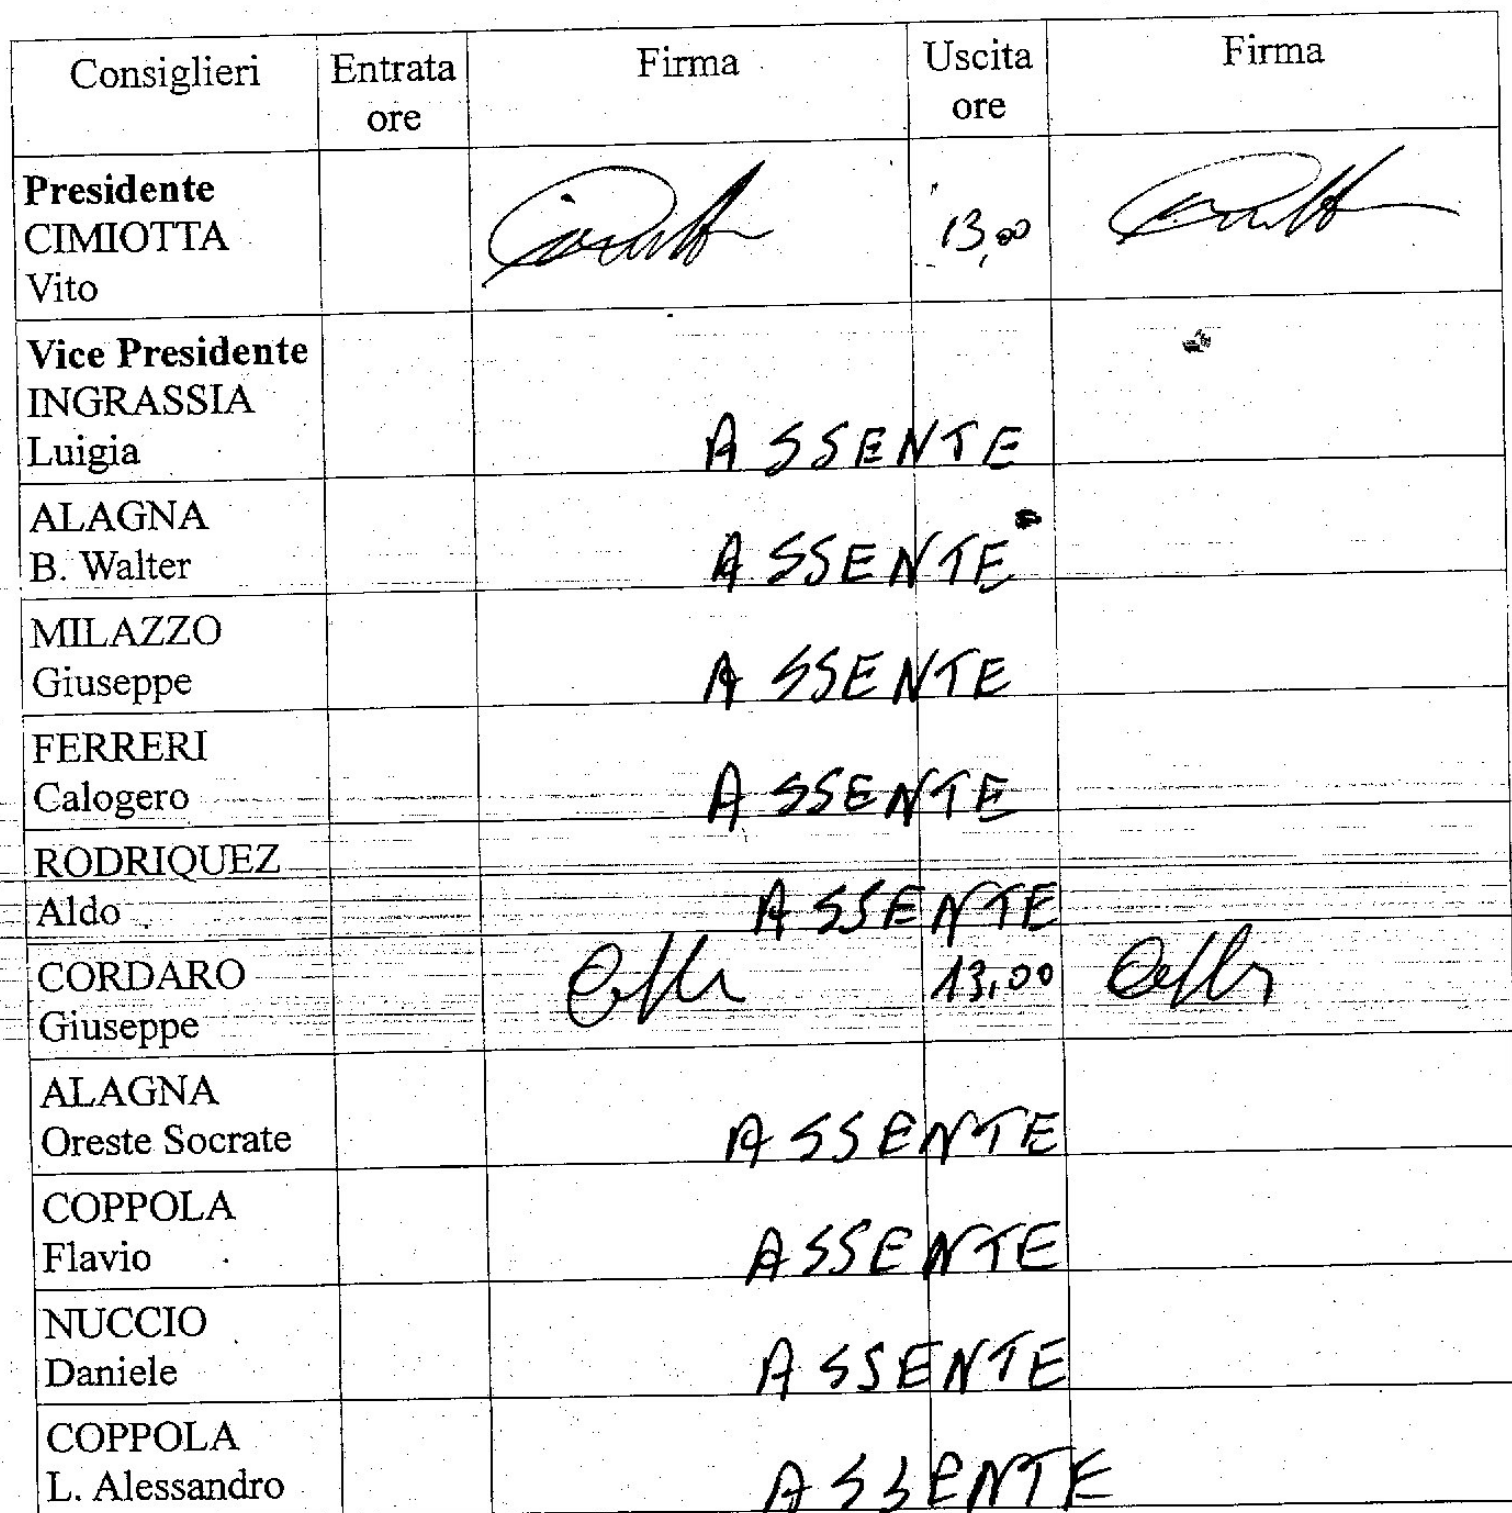 Consiglieri Entrata ore Firma Uscita ore Firma
Presidente
CIMIOTTA 13,00
Vito
Vice Presidente
INGRASSIA
Luigia ASSENTE
ALAGNA
B. Walter ASSENTE
MILAZZO
Giuseppe ASSENTE
FERRERI
Calogero ASSENTE
RODRIQUEZ
Aldo ASSENTE
CORDARO 13,00
Giuseppe
ALAGNA
Oreste Socrate ASSENTE
COPPOLA
Flavio ASSENTE
NUCCIO
Daniele ASSENTE
COPPOLA
L. Alessandro ASSENTE